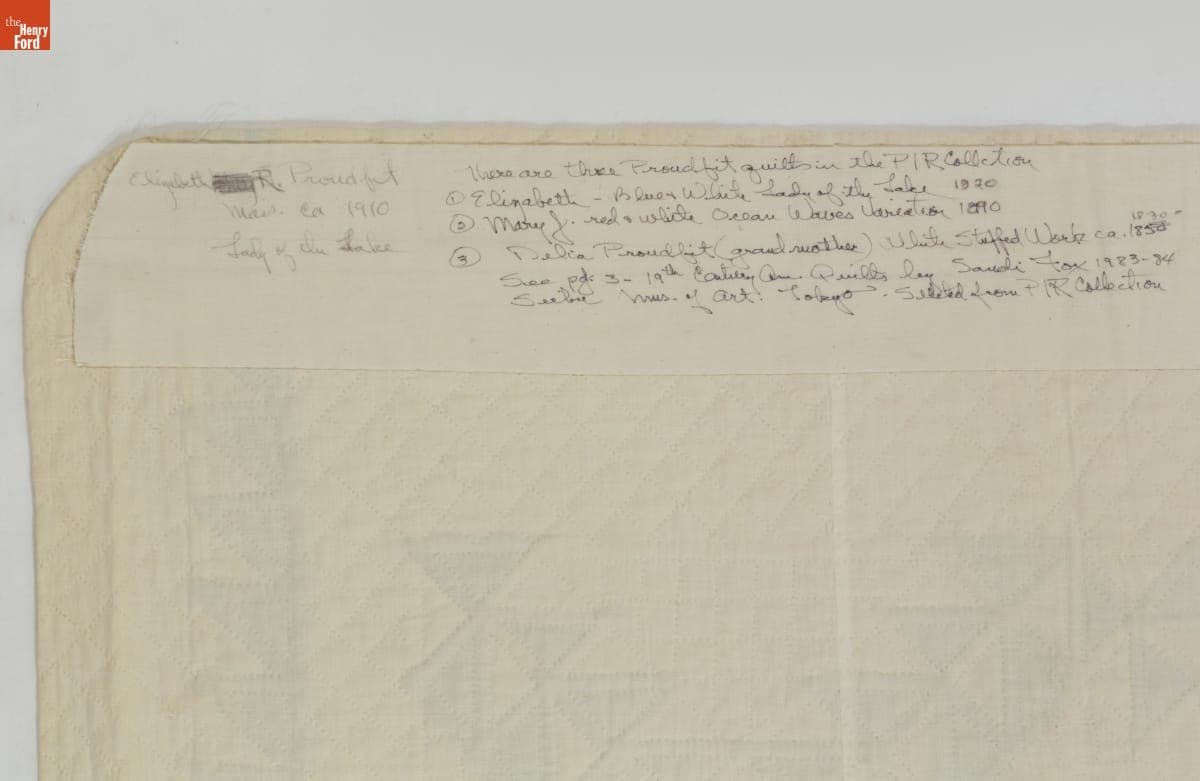 the
Henry
Ford
Elizabeth R. Proudfit
Mass. ca 1910
Lady of the Lake
There are three Proudfit quilts in the P/R Collection
① Elizabeth - Blue & White Lady of the Lake 1920
② Mary J. red & white Ocean Waves Variation 1890
③ Delia Proudfit (grandmother) White Stuffed Work ca. 1850
1830-
See pg. 3 - 19th Century Am. Quilts by Sandi Fox 1983-84
Seibu Mus. of Art: Tokyo - Selected from P/R Collection